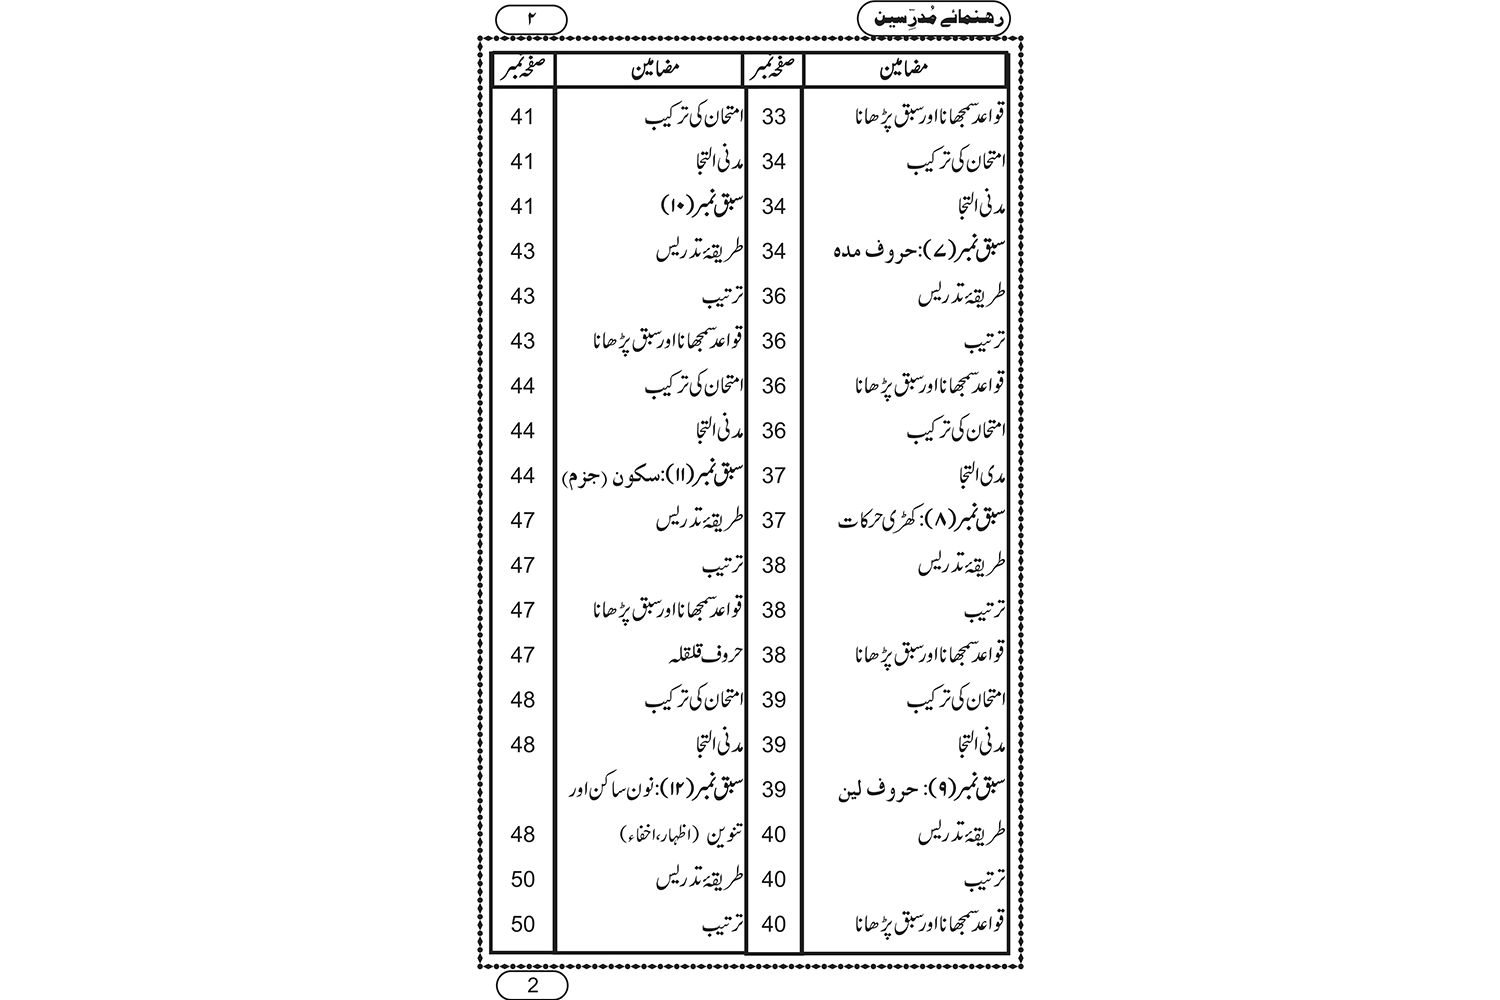 رہنمائے مُدرِّسین ۲
مضامین صفحہ نمبر مضامین صفحہ نمبر
قواعد سمجھانا اور سبق پڑھانا 33 امتحان کی ترکیب 41
امتحان کی ترکیب 34 مدنی التجا 41
مدنی التجا 34 سبق نمبر (۱۰) 41
سبق نمبر (۷): حروف مدہ 34 طریقۂ تدریس 43
طریقۂ تدریس 36 ترتیب 43
ترتیب 36 قواعد سمجھانا اور سبق پڑھانا 43
قواعد سمجھانا اور سبق پڑھانا 36 امتحان کی ترکیب 44
امتحان کی ترکیب 36 مدنی التجا 44
مدی التجا 37 سبق نمبر (۱۱): سکون (جزم) 44
سبق نمبر (۸): کھڑی حرکات 37 طریقۂ تدریس 47
طریقۂ تدریس 38 ترتیب 47
ترتیب 38 قواعد سمجھانا اور سبق پڑھانا 47
قواعد سمجھانا اور سبق پڑھانا 38 حروف قلقلہ 47
امتحان کی ترکیب 39 امتحان کی ترکیب 48
مدنی التجا 39 مدنی التجا 48
سبق نمبر (۹): حروف لین 39 سبق نمبر (۱۲): نون ساکن اور
طریقۂ تدریس 40 تنوین (اظہار، اخفاء) 48
ترتیب 40 طریقۂ تدریس 50
قواعد سمجھانا اور سبق پڑھانا 40 ترتیب 50
2